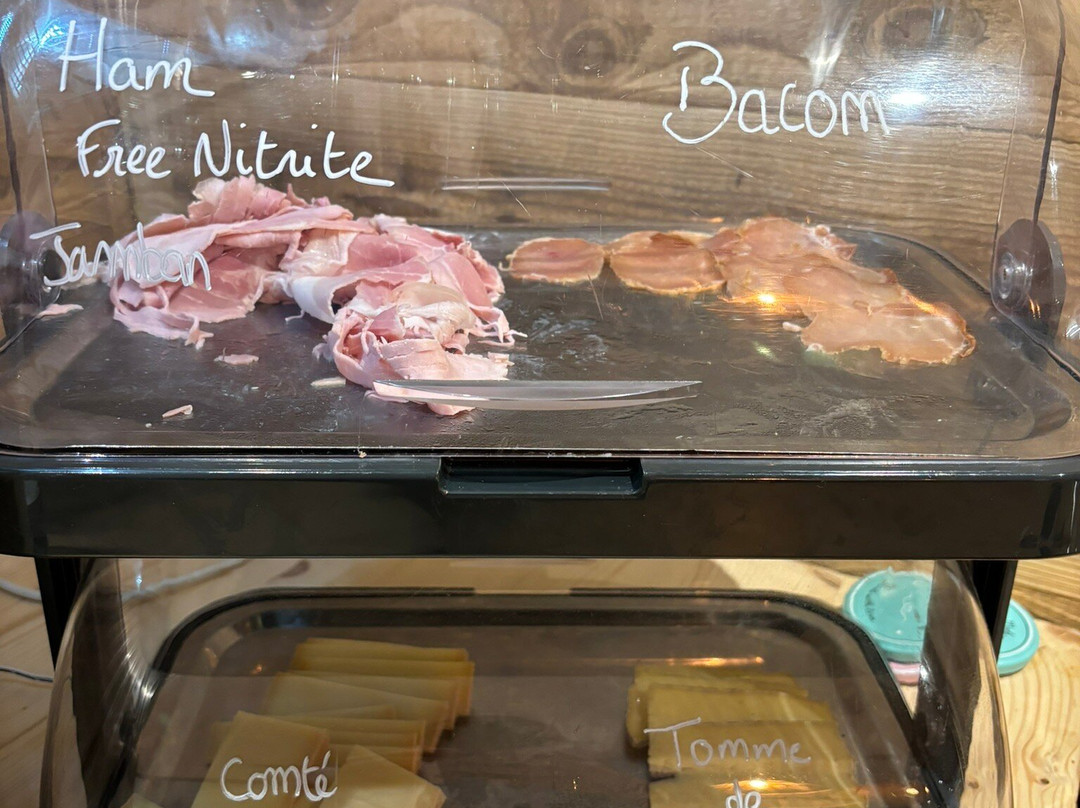 Ham
Free Nitrite
Jambon
Bacom
Comté
Tomme
de